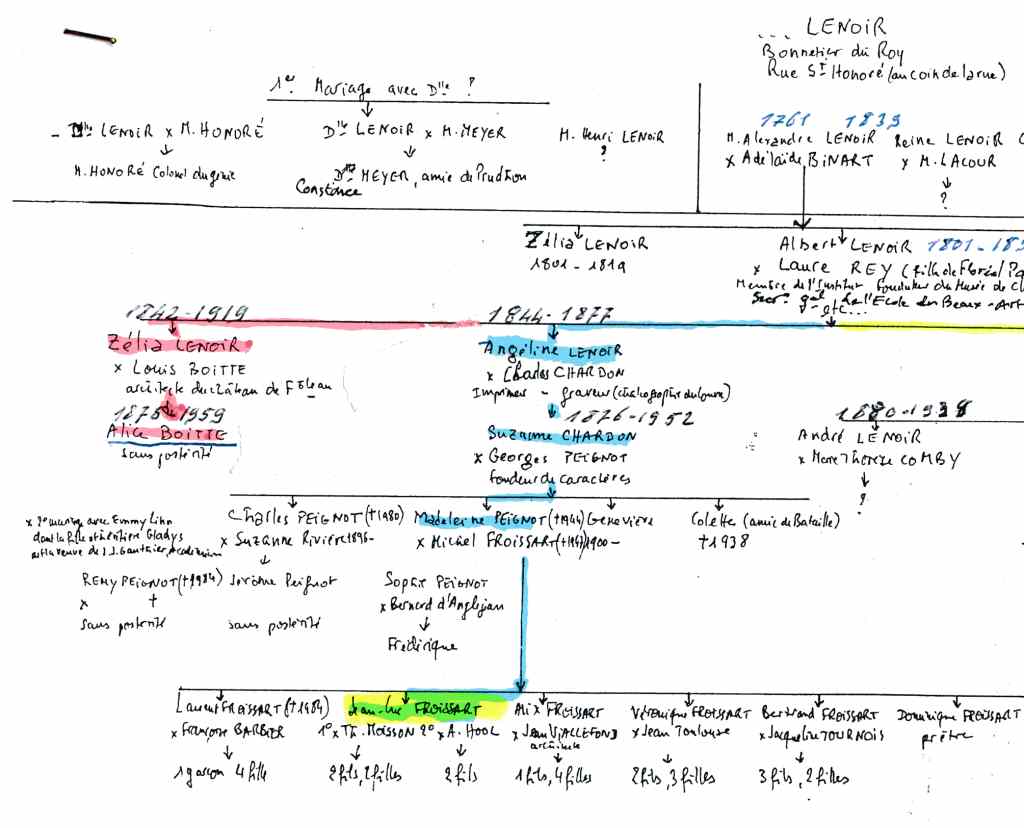 ... LENOIR
Bonnetier du Roy
Rue St Honoré (au coin de la rue)
1er Mariage avec Dlle ?
Dlle LENOIR x M. HONORÉ
M. HONORÉ Colonel du génie
Dlle LENOIR x M. MEYER
Dlle MEYER, amie de Prudhon
Constance
M. Henri LENOIR
?
1761 1839
M. Alexandre LENOIR
x Adélaïde BINART
Reine LENOIR
x M. LACOUR
?
Zélia LENOIR
1801 - 1819
Albert LENOIR 1801 -
x Laure REY (fille de Floréal
Membre de l'Institut fondateur du Musée de
Secr. gal de l'Ecole des Beaux-Arts
etc...
1842-1919
Zélia LENOIR
x Louis BOITTE
architecte du château de Fbleau
1875-1959
Alice BOITTE
sans postérité
1844-1877
Angéline LENOIR
x Charles CHARDON
Imprimeur - graveur (chalcographie du Louvre)
1876-1952
Suzanne CHARDON
x Georges PEIGNOT
fondeur de caractères
1880-1938
André LENOIR
x Marie Thérèse COMBY
?
x 2e mariage avec Emmy
dont la fille et héritière Gladys
est la veuve de J.J. Gauthier,
Charles PEIGNOT (†1980)
x Suzanne Rivière 1896-
Madeleine PEIGNOT (†1944)
x Michel FROISSART
Geneviève
1900-
Colette (amie de Bataille)
†1938
REMY PEIGNOT (†1984)
x †
sans postérité
Jérôme Peignot
sans postérité
PEIGNOT
x Bernard d'Anglejan
Frédérique
Laurent FROISSART (†1984)
x Françoise BARBIER
1 garçon 4 fille
Jean-Luc FROISSART
1° x Th. MOISSON 2° x A. HOOL
2 fils, 2 filles
2 fils
Alix FROISSART
x Jean VIALLEFOND
architecte
1 fils, 4 filles
Véronique FROISSART
x Jean Toulouse
2 fils, 3 filles
Bertrand FROISSART
x Jacqueline TOURNOIS
3 fils, 2 filles
Dominique FROISSART
prêtre